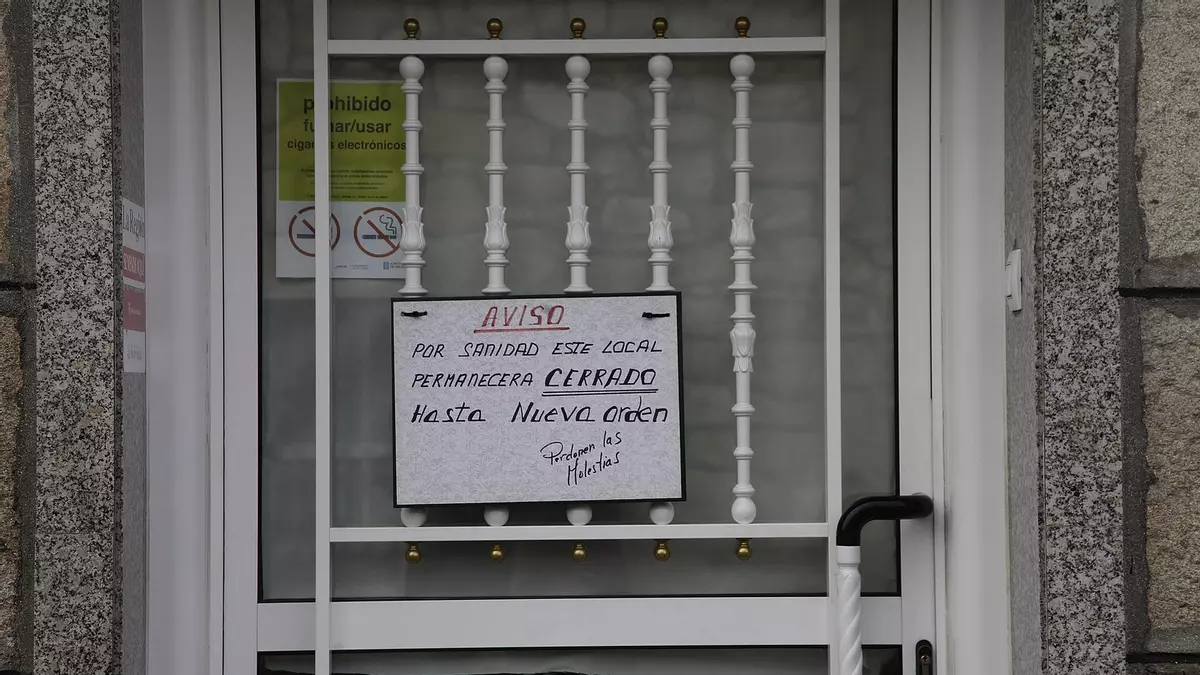 prohibido
fumar/usar
cigarros electrónicos
La Región
AVISO
POR SANIDAD ESTE LOCAL
PERMANECERA CERRADO
Hasta Nueva orden
Perdonen las
Molestias